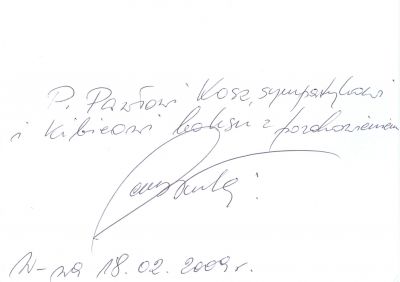 P. Pawłowi Kosz, sympatykowi
i kibicowi boksu z pozdrowieniem
W-wa 18.02.2009r.